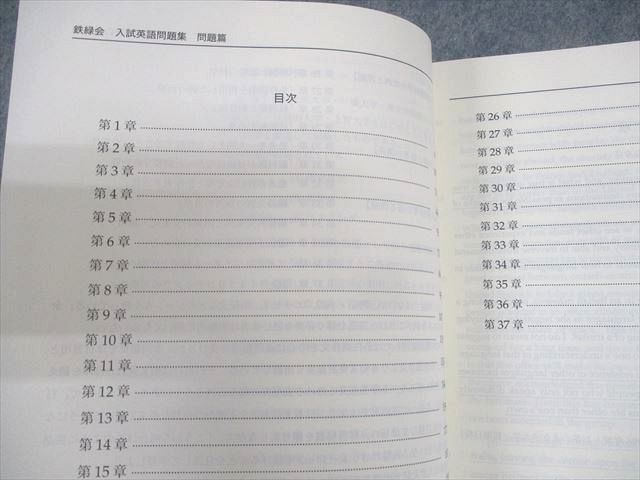 鉄緑会 入試英語問題集 問題篇
目次
第1章
第2章
第3章
第4章
第5章
第6章
第7章
第8章
第9章
第10章
第11章
第12章
第13章
第14章
第15章
第26章
第27章
第28章
第29章
第30章
第31章
第32章
第33章
第34章
第35章
第36章
第37章